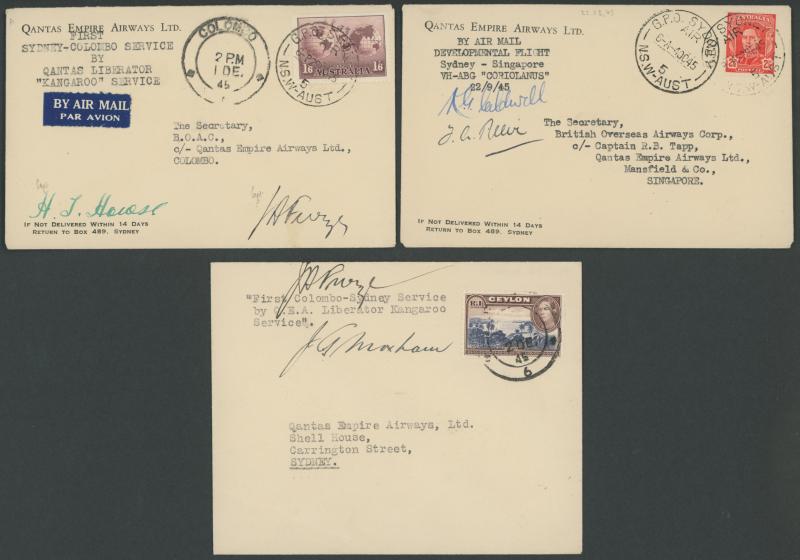 QANTAS EMPIRE AIRWAYS LTD.
FIRST
SYDNEY-COLOMBO SERVICE
BY
QANTAS LIBERATOR
"KANGAROO" SERVICE
BY AIR MAIL
PAR AVION
COLOMBO
2 PM
1 DE.
45
1/6 AUSTRALIA 1/6
G.P.O. SYDNEY
N.S.W-AUST
5
The Secretary,
B.O.A.C.,
c/- Qantas Empire Airways Ltd.,
COLOMBO.
IF NOT DELIVERED WITHIN 14 DAYS
RETURN TO BOX 489, SYDNEY
QANTAS EMPIRE AIRWAYS LTD.
BY AIR MAIL
DEVELOPMENTAL FLIGHT
Sydney - Singapore
VH-ABG "CORIOLANUS"
22/9/45
G.P.O. SYDNEY
AIR
45
5
N.S.W-AUST
AUSTRALIA
The Secretary,
British Overseas Airways Corp.,
c/- Captain R.B. Tapp,
Qantas Empire Airways Ltd.,
Mansfield & Co.,
SINGAPORE.
IF NOT DELIVERED WITHIN 14 DAYS
RETURN TO BOX 489, SYDNEY
"First Colombo-Sydney Service
by Q.E.A. Liberator Kangaroo
Service".
J G Moxham
CEYLON
2 DE.
45
6
Qantas Empire Airways, Ltd.
Shell House,
Carrington Street,
SYDNEY.